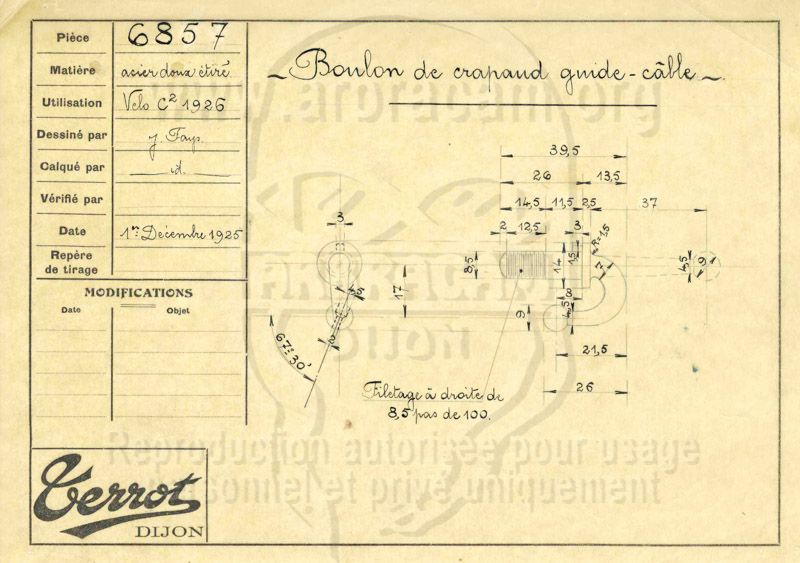 Pièce 6857
Matière acier doux étiré
Utilisation Velo C² 1926
Dessiné par J. Fays.
Calqué par d.
Vérifié par
Date 1er Décembre 1925
Repère
de tirage
MODIFICATIONS
Date Objet
Terrot
DIJON
Boulon de crapaud guide-câble
39,5
26 13,5
14,5 11,5 2,5 37
2 12,5 3
3
R=1,5
8,5 14 1,5 7 4,5 9
17
4,5
8
9 4,5
3
67° 30'
21,5
26
Filetage à droite de
8,5 pas de 100.
www.araracam.org
DIJON
Reproduction autorisée pour usage
personnel et privé uniquement